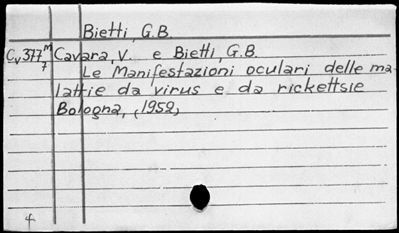 Bietti, G.B.
Cv377 m/7 Cavara, V. e Bietti, G.B.
Le Manifestazioni oculari delle ma-
lattie da virus e da rickettsie
Bologna, (1952)
4